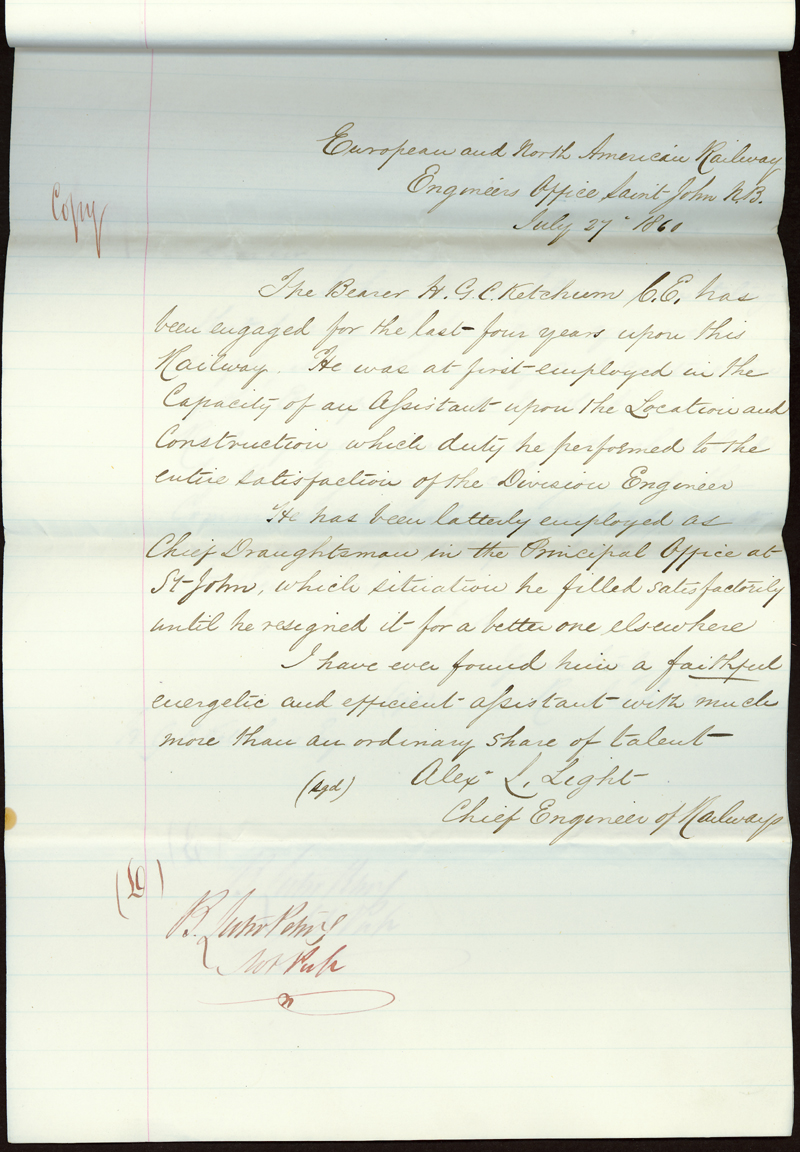 European and North American Railway
Engineers Office, Saint John N.B.
July 27" 1860
Copy
The Bearer H. G. C. Ketchum C.E. has
been engaged for the last four years upon this
Railway. He was at first employed in the
Capacity of an Assistant upon the Location and
Construction which duty he performed to the
entire satisfaction of the Division Engineer
He has been latterly employed as
Chief Draughtsman in the Principal Office at
St John, which situation he filled satisfactorily
until he resigned it for a better one elsewhere
I have ever found him a faithful
energetic and efficient assistant with much
more than an ordinary share of talent
(sgd) Alex" L. Light
Chief Engineer of Railways
B. Lester Peters
Not Pub